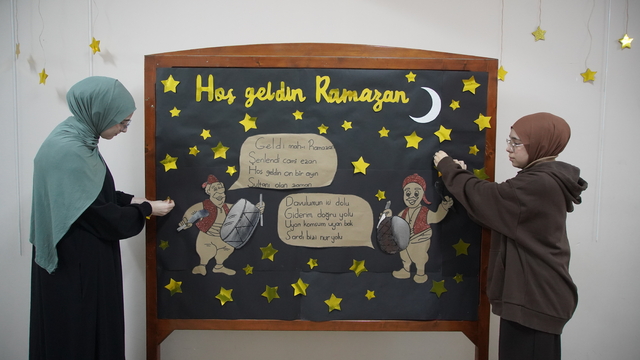 Hoş geldin Ramazan
Geldi mahı Ramazan
Şenlendi cami ezan
Hoş geldin on bir ayın
Sultanı olan zaman
Davulumun içi dolu
Giderim doğru yolu
Uyan komşum uyan bak
Sardı bizi nur yolu